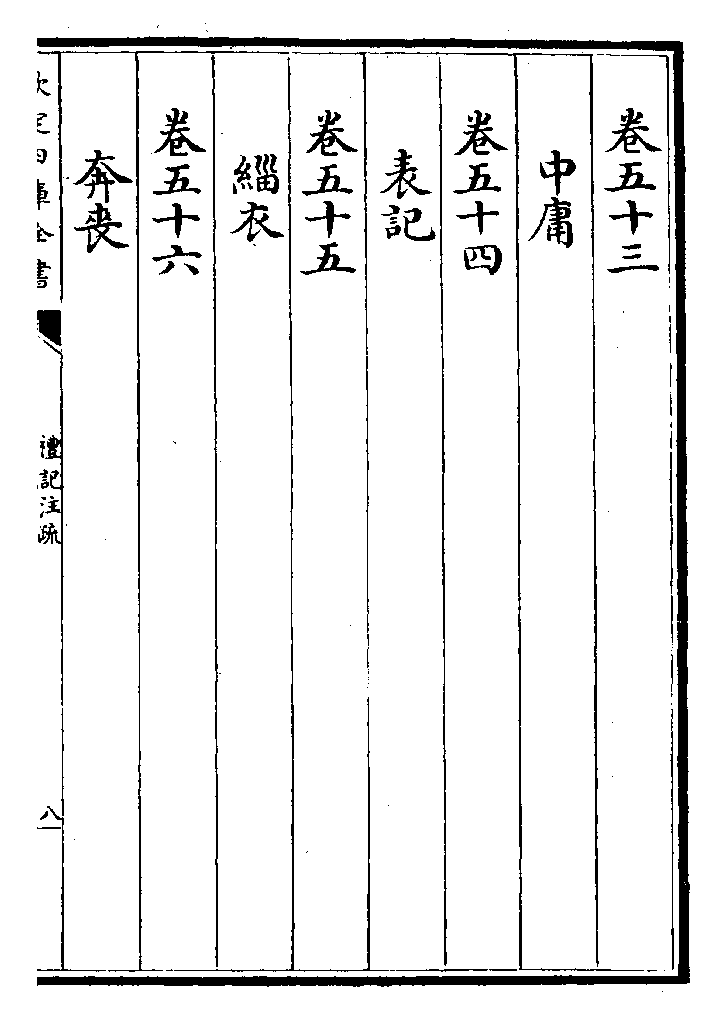 卷五十三
中庸
卷五十四
表記
卷五十五
緇衣
卷五十六
奔喪
欽定四庫全書
禮記注疏
八